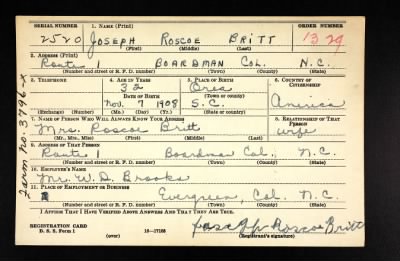 SERIAL NUMBER 1. NAME (Print) ORDER NUMBER
2520 JOSEPH ROSCOE BRITT 1329
(First) (Middle) (Last)
2. ADDRESS (Print)
Route 1 BOARDMAN COL. N.C.
(Number and street or R. F. D. number) (Town) (County) (State)
3. TELEPHONE 4. AGE IN YEARS 5. PLACE OF BIRTH 6. COUNTRY OF CITIZENSHIP
32 Orea
DATE OF BIRTH (Town or county)
Nov. 7 1908 S.C. America
(Exchange) (Number) (Mo.) (Day) (Yr.) (State or country)
7. NAME OF PERSON WHO WILL ALWAYS KNOW YOUR ADDRESS 8. RELATIONSHIP OF THAT PERSON
Mrs. Roscoe Britt wife
(Mr., Mrs., Miss) (First) (Middle) (Last)
9. ADDRESS OF THAT PERSON
Route 1 Boardman Col. N.C.
(Number and street or R. F. D. number) (Town) (County) (State)
10. EMPLOYER'S NAME
Mr. W. D. Brooks
11. PLACE OF EMPLOYMENT OR BUSINESS
Evergreen, Col. N.C.
(Number and street or R. F. D. number) (Town) (County) (State)
I AFFIRM THAT I HAVE VERIFIED ABOVE ANSWERS AND THAT THEY ARE TRUE.
REGISTRATION CARD
D. S. S. Form 1 (over) 16-17105 Roscoe Britt
(Registrant's signature)
Farm no. 3796-x